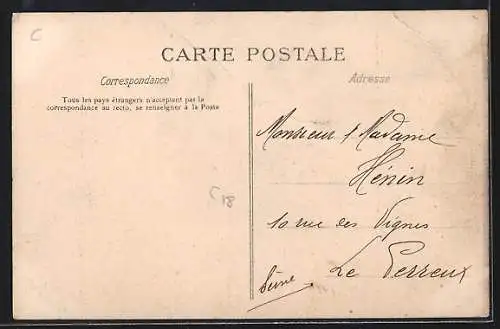 C
CARTE POSTALE
Correspondance
Tous les pays étrangers n'acceptant pas la
correspondance au recto, se renseigner à la Poste
C18
Adresse
Monsieur & Madame
Hénin
10 rue des Vignes
Le Perreux
Seine